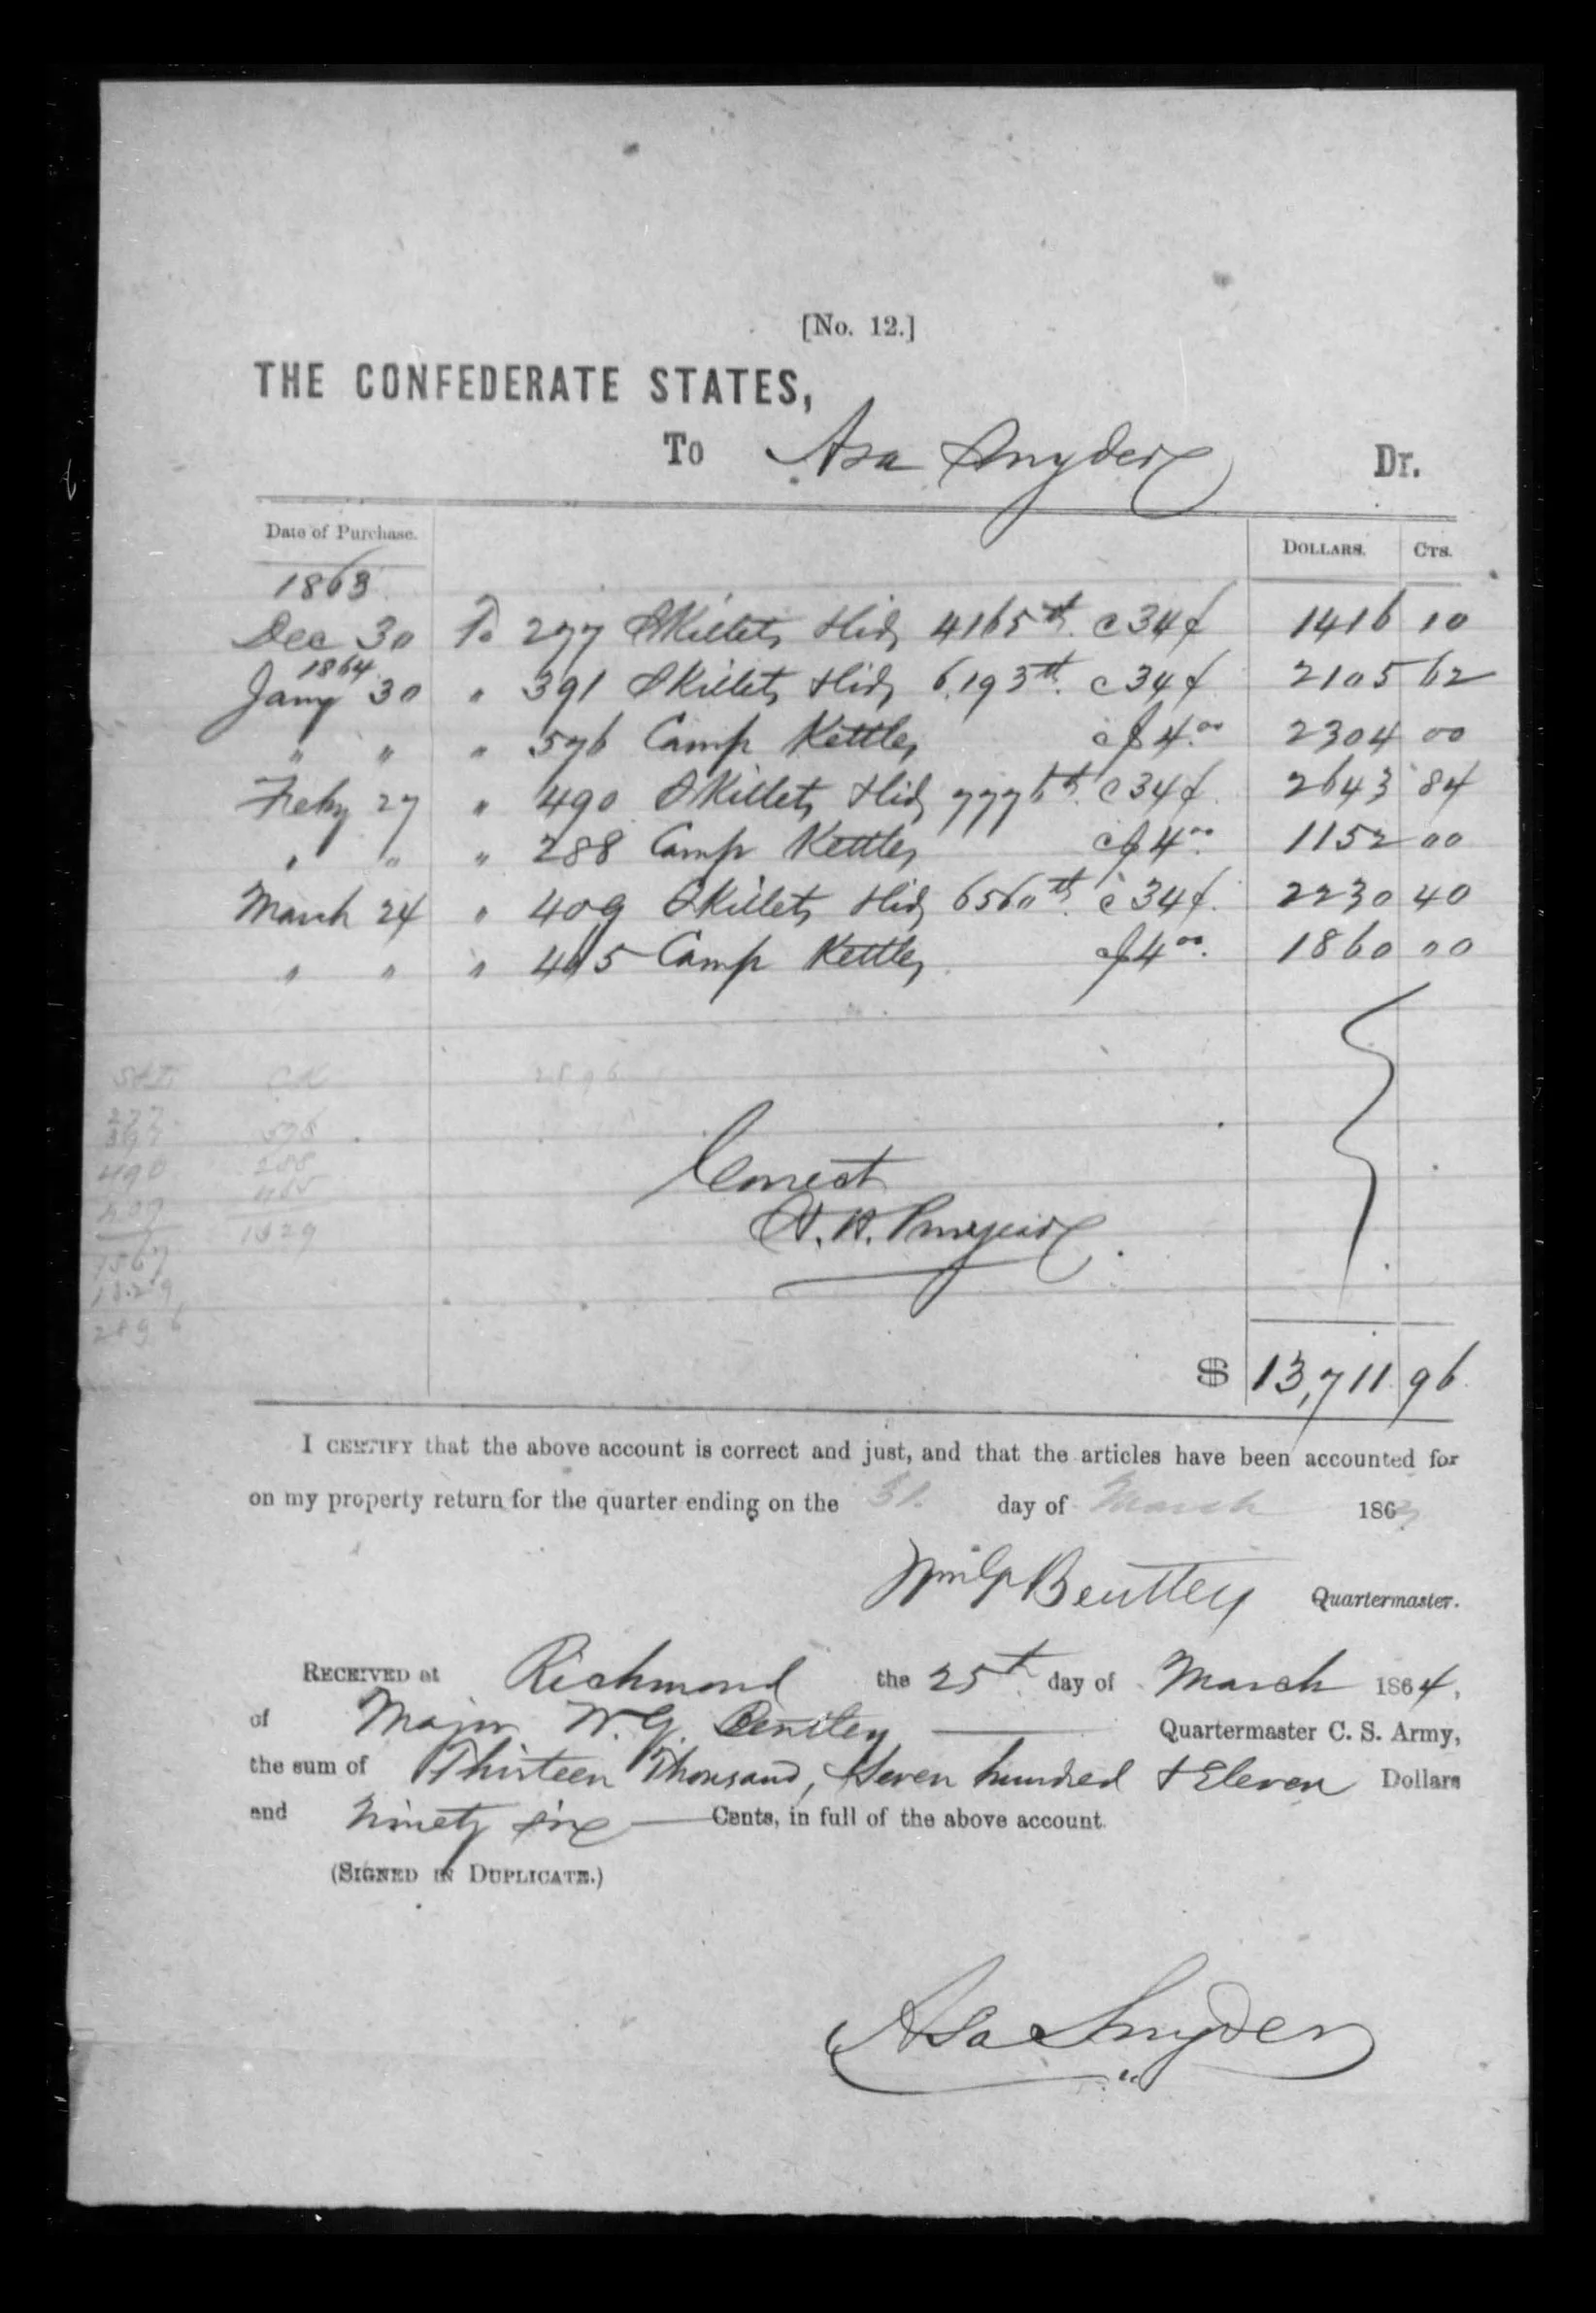 [No. 12.]
THE CONFEDERATE STATES,
To Asa Snyder Dr.
Date of Purchase. DOLLARS. CTS.
1863
Dec 30 To 277 Skillets & lids 4165 lb. @ 34¢ 1416 10
1864
Jany 30 " 391 Skillets & lids 6,193 lb. @ 34¢ 2105 62
" " " 576 Camp Kettles @ $4.00 2304 00
Feby 27 " 490 Skillets & lids 7776 lb. @ 34¢ 2643 84
" " " 288 Camp Kettles @ $4.00 1152 00
March 24 " 409 Skillets & lids 6560 lb. @ 34¢ 2230 40
" " " 465 Camp Kettles @ $4.00 1860 00
CK 2896
277
391 576
490 288
409 465
1567 1329
1329
2896
Correct
Puryear
$ 13,711 96
I CERTIFY that the above account is correct and just, and that the articles have been accounted for
on my property return for the quarter ending on the 31. day of March 186
Wm G Bentley Quartermaster.
RECEIVED at Richmond the 25th day of March 1864,
of Major W. G. Bentley Quartermaster C. S. Army,
the sum of Thirteen Thousand, Seven hundred & Eleven Dollars
and Ninety six Cents, in full of the above account.
(SIGNED IN DUPLICATE.)
Asa Snyder